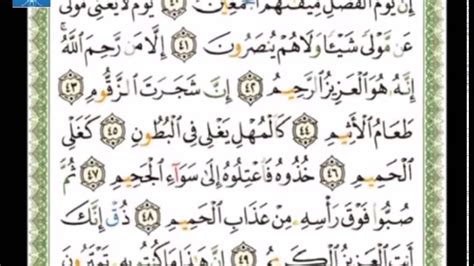 إِنَّ يَوْمَ ٱلْفَصْلِ مِيقَٰتُهُمْ أَجْمَعِينَ ٤٠ يَوْمَ لَا يُغْنِى مَوْلًى
عَن مَّوْلًى شَيْـًٔا وَلَا هُمْ يُنصَرُونَ ٤١ إِلَّا مَن رَّحِمَ ٱللَّهُ
إِنَّهُۥ هُوَ ٱلْعَزِيزُ ٱلرَّحِيمُ ٤٢ إِنَّ شَجَرَتَ ٱلزَّقُّومِ ٤٣
طَعَامُ ٱلْأَثِيمِ ٤٤ كَٱلْمُهْلِ يَغْلِى فِى ٱلْبُطُونِ ٤٥ كَغَلْىِ
ٱلْحَمِيمِ ٤٦ خُذُوهُ فَٱعْتِلُوهُ إِلَىٰ سَوَآءِ ٱلْجَحِيمِ ٤٧ ثُمَّ
صُبُّوا۟ فَوْقَ رَأْسِهِۦ مِنْ عَذَابِ ٱلْحَمِيمِ ٤٨ ذُقْ إِنَّكَ
أَنتَ ٱلْعَزِيزُ ٱلْكَرِيمُ ٤٩ إِنَّ هَٰذَا مَا كُنتُم بِهِۦ تَمْتَرُونَ